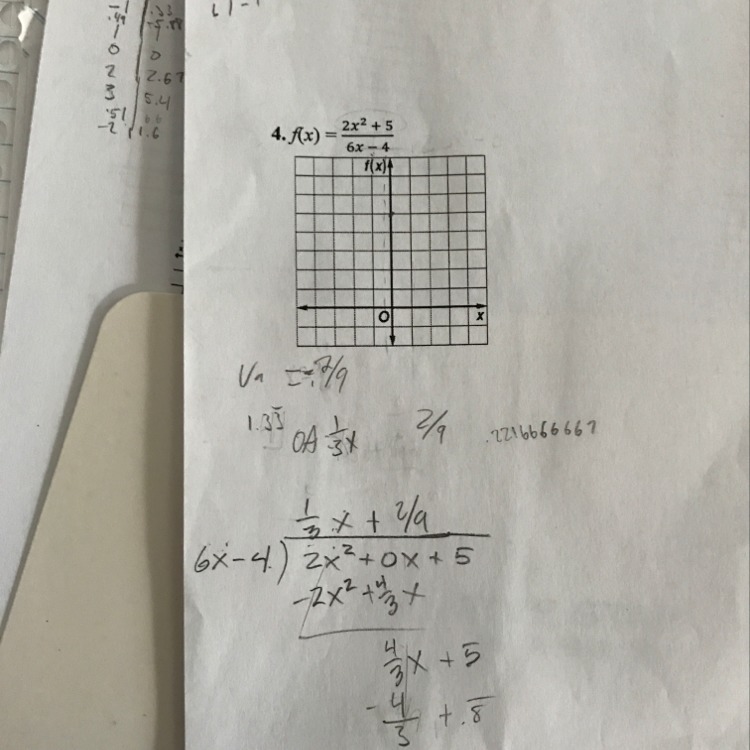 .33
0 0
2 2.67
3 5.4
.51
-2 1.6
4. f(x) = 2x² + 5
6x – 4
f(x)
O x
Va
2/9
1.33 OA 1/3 x 2/9 .2216666667
1/3 x + 2/9
6x-4 ) 2x² + 0x + 5
-2x² + 4/3 x
4/3 x + 5
- 4/3 + .8